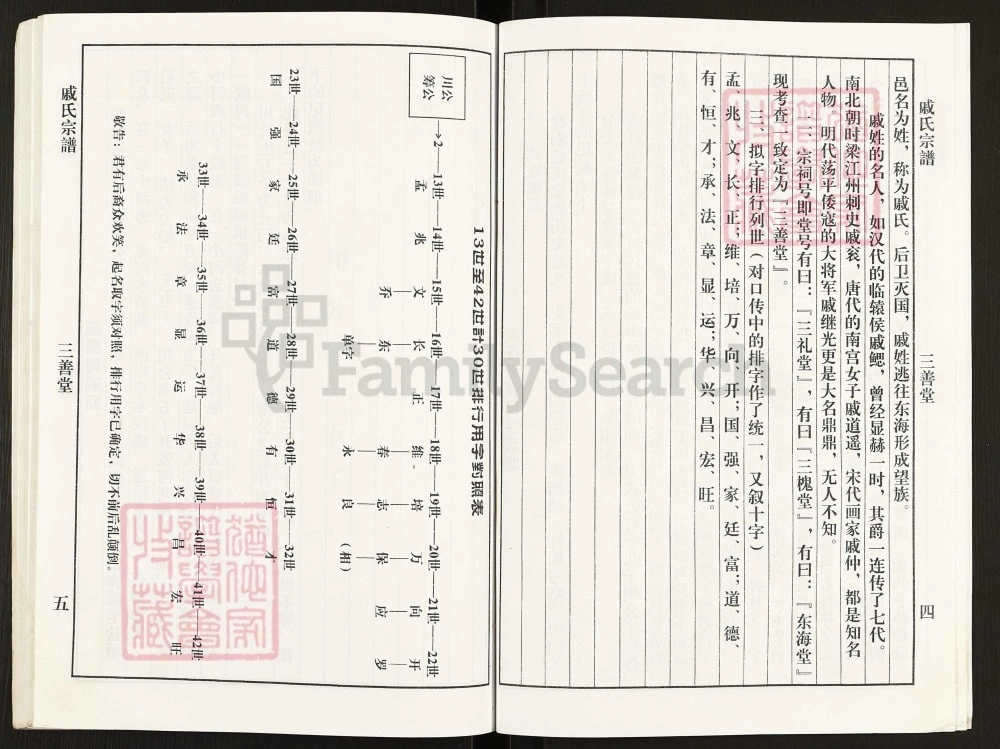 戚氏宗譜
三善堂
四
邑名为姓，称为戚氏。后卫灭国，戚姓逃往东海形成望族。
戚姓的名人，如汉代的临辕侯戚鳃，曾经显赫一时，其爵一连传了七代。
南北朝时梁江州刺史戚衮，唐代的南宫女子戚道遥，宋代画家戚仲，都是知名
人物，明代荡平倭寇的大将军戚继光更是大名鼎鼎，无人不知。
二、宗祠号即堂号有曰：『三礼堂』，有曰『三槐堂』，有曰：『东海堂』
现考查一致定为『三善堂』。
三、拟字排行列世（对口传中的排字作了统一，又叙十字）
孟、兆、文、长、正；维、培、万、向、开；国、强、家、廷、富；道、德、
有、恒、才；承、法、章、显、运；华、兴、昌、宏、旺。
13世至42世計30世排行用字對照表
川公
筹公
→2—13世—14世—15世—16世—17世—18世—19世—20世—21世—22世
孟 兆 文 长 正 维 培 万 向 开
乔 东 春 志 保 应 罗
单字 永 良 （相）
23世—24世—25世—26世—27世—28世—29世—30世—31世—32世
国 强 家 廷 富 道 德 有 恒 才
33世—34世—35世—36世—37世—38世—39世—40世—41世—42世
承 法 章 显 运 华 兴 昌 宏 旺
敬告：君有后裔众欢笑，起名取字须对照，排行用字已确定，切不前后乱颠倒。
戚氏宗譜
三善堂
五
FamilySearch